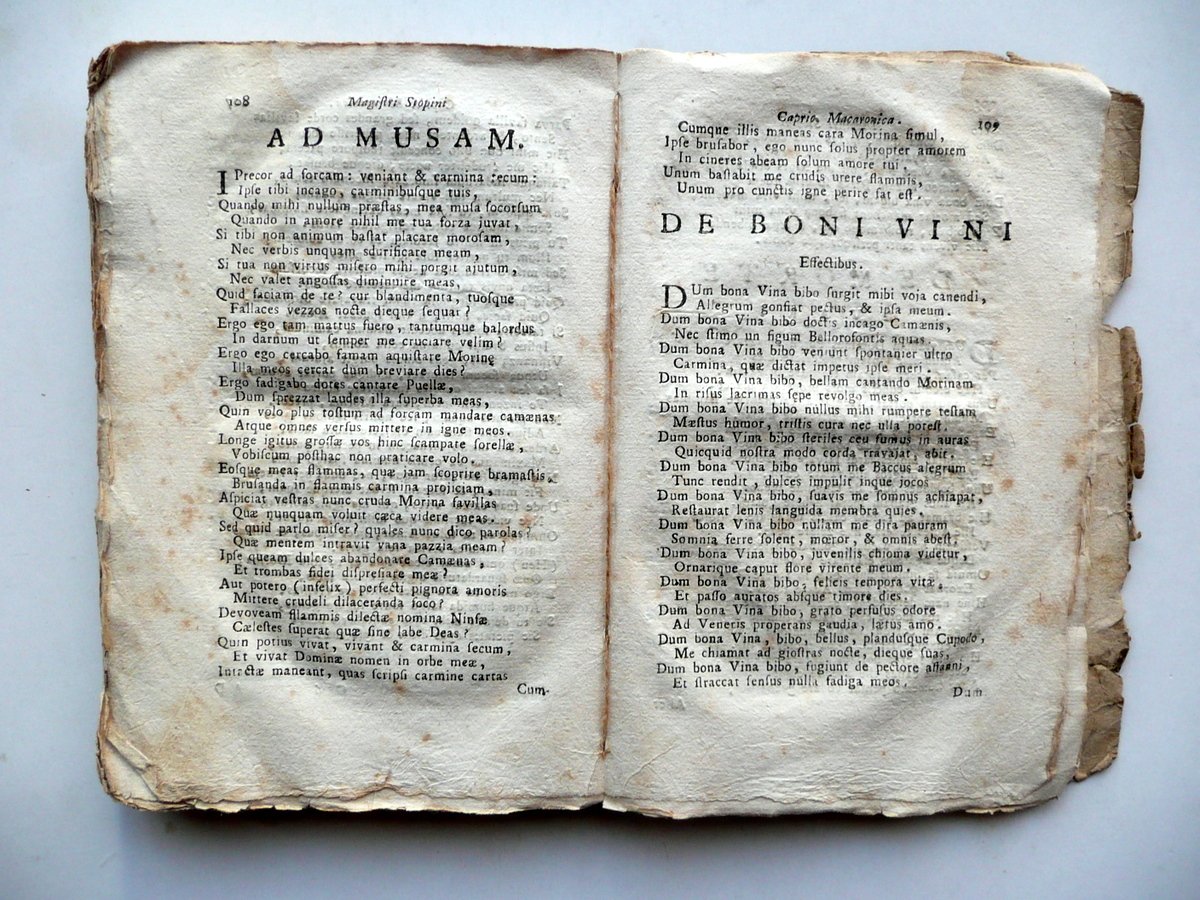 108
Magiſtri Stopini
AD MUSAM.
I Precor ad forcam: veniant & carmina tecum:
Ipſe tibi incago, carminibuſque tuis,
Quando mihi nullum præſtas, mea muſa ſocorſum
Quando in amore nihil me tua forza juvat,
Si tibi non animum baſtat placare moroſam,
Nec verbis unquam sdurificare meam,
Si tua non virtus miſero mihi porgit ajutum,
Nec valet angoſſas diminuire meas,
Quid faciam de te? cur blandimenta, tuoſque
Fallaces vezzos nocte dieque ſequar?
Ergo ego tam mattus fuero, tantumque balordus
In darnum ut ſemper me cruciare velim?
Ergo ego cercabo famam aquiſtare Morinę
Illa meos cercat dum breviare dies?
Ergo fadigabo dotes cantare Puellæ,
Dum ſprezzat laudes illa ſuperba meas,
Quin volo plus toſtum ad forcam mandare camænas
Atque omnes verſus mittere in igne meos.
Longe igitus groſſæ vos hinc ſcampate ſorellæ,
Vobiſcum poſthac non praticare volo.
Eoſque meas flammas, quæ jam ſcoprire bramaſtis,
Bruſanda in flammis carmina projiciam,
Aſpiciat veſtras nunc cruda Morina favillas
Quæ nunquam voluit cæca videre meas.
Sed quid parlo miſer? quales nunc dico parolas?
Quæ mentem intravit vana pazzia meam?
Ipſe queam dulces abandonare Camænas,
Et trombas fidei diſpreſiare meæ?
Aut potero (infelix) perfecti pignora amoris
Mittere crudeli dilaceranda foco?
Devoveam fllammis dilectæ nomina Ninfæ
Cæleſtes ſuperat quæ ſine labe Deas?
Quin potius vivat, vivant & carmina ſecum,
Et vivat Dominæ nomen in orbe meæ,
Intactæ maneant, quas ſcripſi carmine cartas
Cum-
Capric. Macaronica.
109
Cumque illis maneas cara Morina ſimul,
Ipſe bruſabor, ego nunc ſolus propter amorem
In cineres abeam ſolum amore tui.
Unum baſtabit me crudis urere flammis,
Unum pro cunctis igne perire ſat eſt.
DE BONI VINI
Effectibus.
DUm bona Vina bibo ſurgit mihi voja canendi,
Allegrum gonfiat pectus, & ipſa meum.
Dum bona Vina bibo doctis incago Camænis,
Nec ſtimo un figum Bellorofontis aquas.
Dum bona Vina bibo veniunt ſpontanier ultro
Carmina, quæ dictat impetus ipſe meri.
Dum bona Vina bibo, bellam cantando Morinam
In riſus lacrimas ſępe revolgo meas.
Dum bona Vina bibo nullus mihi rumpere teſtam
Mæſtus humor, triſtis cura nec ulla poteſt.
Dum bona Vina bibo ſteriles ceu fumus in auras
Quicquid noſtra modo corda travajat, abit.
Dum bona Vina bibo totum me Baccus alegrum
Tunc rendit, dulces impulit inque jocos
Dum bona Vina bibo, ſuavis me ſomnus achiapat,
Reſtaurat lenis languida membra quies.
Dum bona Vina bibo nullam me dira pauram
Somnia ferre ſolent, mœror, & omnis abeſt.
Dum bona Vina bibo, juvenilis chioma videtur,
Ornarique caput flore virente meum.
Dum bona Vina bibo, felicis tempora vitæ,
Et paſſo auratos abſque timore dies.
Dum bona Vina bibo, grato perfuſus odore
Ad Veneris properans gaudia, lætus amo.
Dum bona Vina, bibo, bellus, plandusque Cupodo,
Me chiamat ad gioſtras nocte, dieque ſuas,
Dum bona Vina bibo, fugiunt de pectore affanni,
Et ſtraccat ſenſus nulla fadiga meos.
Dum